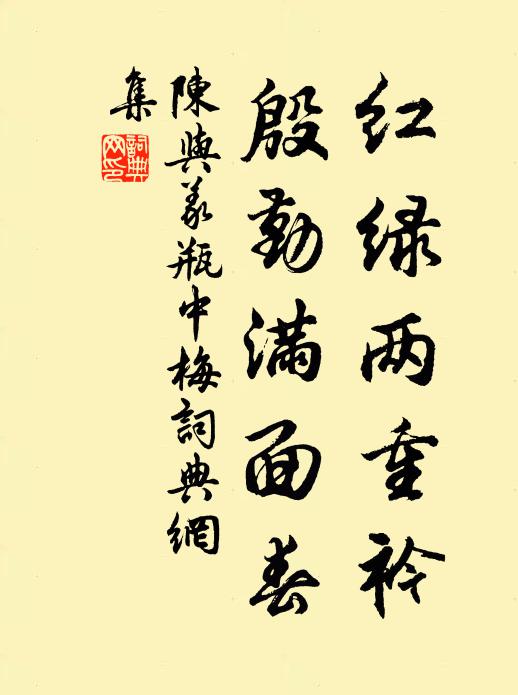 红绿两重衿
殷勤满面春
陳與义瓶中梅詞典網
集
詞典網印